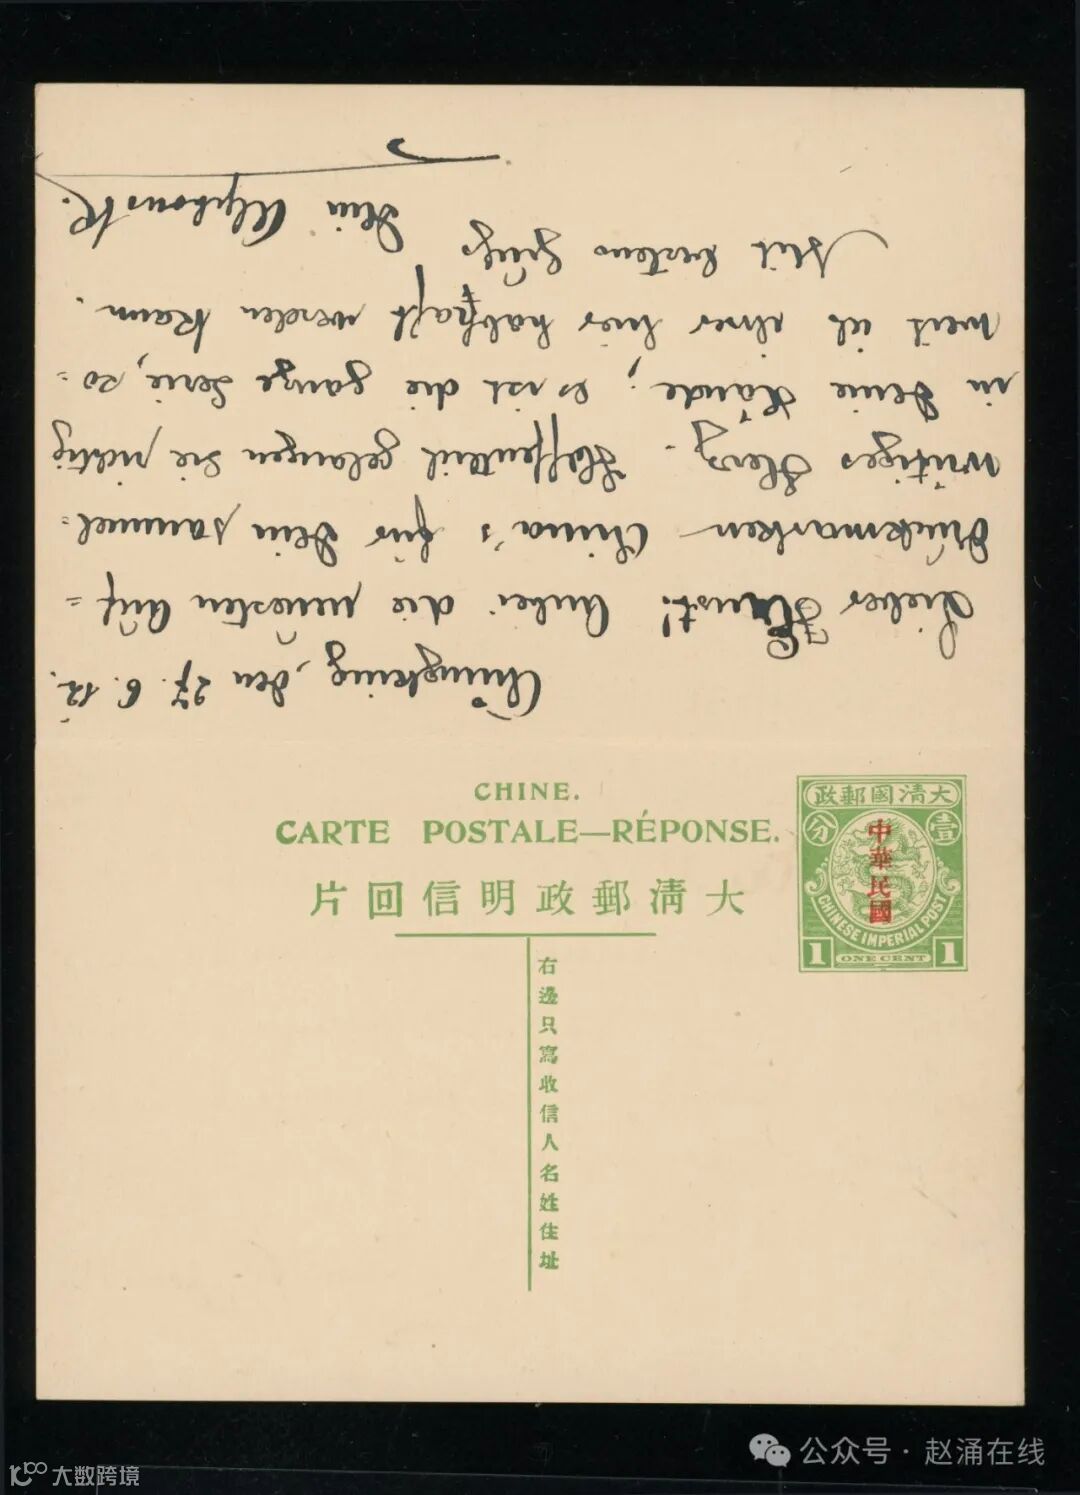 Chungking, den 27. 6. 12.
Lieber Ernst! Anbei die neuesten Auf=
druckmarken China's für Dein sammel=
wütiges Herz. Hoffentlich gelangen sie richtig
in Deine Hände; es ist die ganze Serie, so=
weit ich ihrer hier habhaft werden kann.
Mit bestem Gruß
Dein Alphons K.
CHINE.
CARTE POSTALE—RÉPONSE.
大清郵政明信回片
右邊只寫收信人名姓住址
大清國郵政
壹分
中華民國
CHINESE IMPERIAL POST
1 ONE CENT 1
公众号 · 赵涌在线
大数跨境